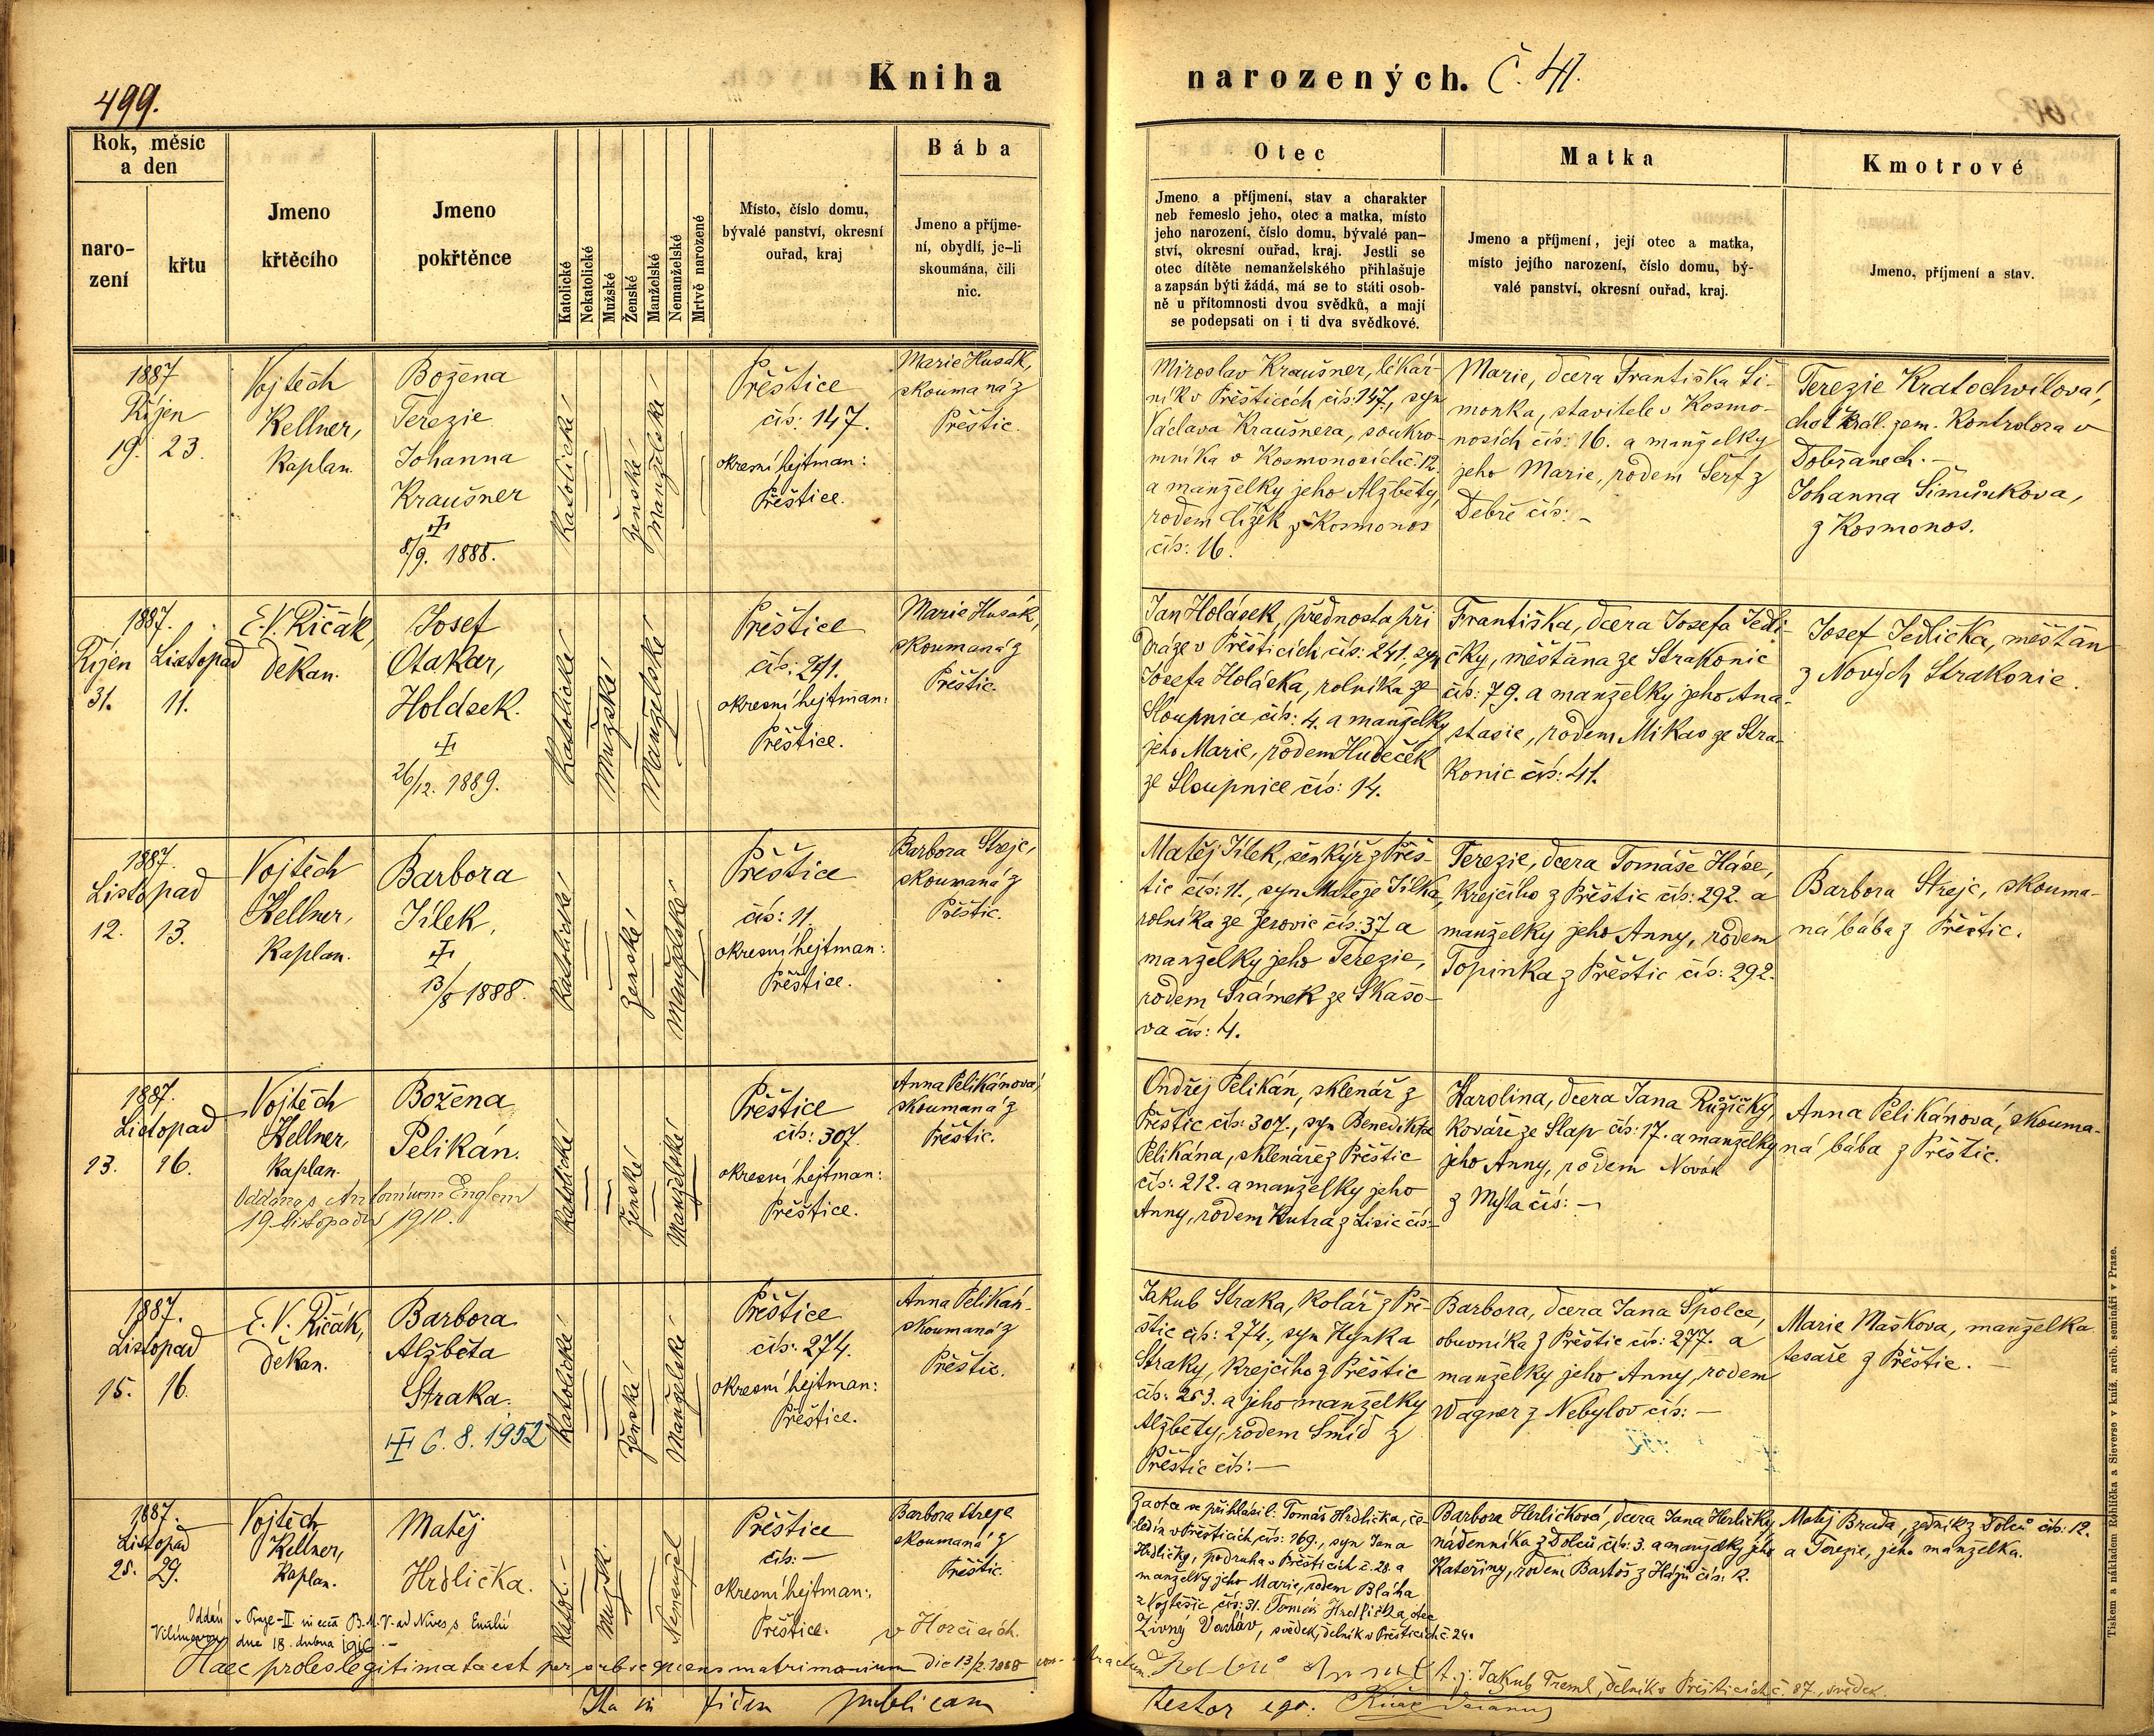 499.
Kniha
narozených. Č. 41.
Rok, měsíc
a den
naro-
zení
křtu
Jmeno
křtěcího
Jmeno
pokřtěnce
Katolické
Nekatolické
Mužské
Ženské
Manželské
Nemanželské
Mrtvě narozené
Místo, číslo domu,
bývalé panství, okresní
ouřad, kraj
Bába
Jmeno a příjme-
ní, obydlí, je-li
skoumána, čili
nic.
Otec
Jmeno a příjmení, stav a charakter
neb řemeslo jeho, otec a matka, místo
jeho narození, číslo domu, bývalé pan-
ství, okresní ouřad, kraj. Jestli se
otec dítěte nemanželského přihlašuje
a zapsán býti žádá, má se to státi osob-
ně u přítomnosti dvou svědků, a mají
se podepsati on i ti dva svědkové.
Matka
Jmeno a příjmení, její otec a matka,
místo jejího narození, číslo domu, bý-
valé panství, okresní ouřad, kraj.
Kmotrové
Jmeno, příjmení a stav.
1887
Říjen
19. 23.
Vojtěch
Kellner,
Kaplan.
Božena
Terezie
Johanna
Kraušner
8/9. 1888.
Katolické
Ženské
Manželské
Přeštice
čís: 147.
okresní hejtman:
Přeštice.
Marie Husák,
skoumaná z
Přeštic.
Miroslav Kraušner, lékár-
ník v Přešticích čís: 147., syn
Václava Kraušnera, soukro-
mníka v Kosmonosích č: 12.
a manželky jeho Alžběty,
rodem Čížek z Kosmonos
čís: 16.
Marie, dcera Františka Ši-
monka, stavitele v Kosmo-
nosích čís: 16. a manželky
jeho Marie, rodem Šerf z
Debře čís: –
Terezie Kratochvilová,
choť král. zem. Kontrolora v
Dobřanech. –
Johanna Šimůnková,
z Kosmonos.
1887.
Říjen Listopad
31. 11.
E. V. Říčák,
Děkan.
Josef
Otakar,
Holásek.
26/12. 1889.
Katolické
Mužské
Manželské
Přeštice
čís: 241.
okresní hejtman:
Přeštice.
Marie Husák,
skoumaná z
Přeštic.
Jan Holásek, přednosta při
dráze v Přešticích čís: 241., syn
Josefa Holáska, rolníka ze
Sloupnice čís: 4. a manželky
jeho Marie, rodem Hudeček
ze Sloupnice čís: 14.
Františka, dcera Josefa Jedli-
čky, měšťana ze Strakonic
čís: 79. a manželky jeho Ana-
stasie, rodem Mikas ze Stra-
konic čís: 41.
Josef Jedlička, měšťan
z Nových Strakonic.
1887.
Listopad
12. 13.
Vojtěch
Kellner,
Kaplan.
Barbora
Jílek,
13/8 1888.
Katolické
Ženské
Manželské
Přeštice
čís: 11.
okresní hejtman:
Přeštice.
Barbora Strejc,
skoumaná z
Přeštic.
Matěj Jílek, šenkýř z Přeš-
tic čís: 11., syn Matěje Jílka,
rolníka ze Jerovic čís: 37 a
manželky jeho Terezie,
rodem Šrámek ze Skašo-
va čís: 4.
Terezie, dcera Tomáše Háse,
krejčího z Přeštic čís: 292. a
manželky jeho Anny, rodem
Topinka z Přeštic čís: 292.
Barbora Strejc, skouma-
ná bába z Přeštic.
1887.
Listopad
13. 16.
Vojtěch
Kellner,
Kaplan.
Božena
Pelikán.
Oddána s Antonínem Englem
19. listopadu 1910.
Katolické
Ženské
Manželské
Přeštice
čís: 307.
okresní hejtman:
Přeštice.
Anna Pelikánová,
skoumaná z
Přeštic.
Ondřej Pelikán, sklenář z
Přeštic čís: 307., syn Benedikta
Pelikána, sklenáře z Přeštic
čís: 212. a manželky jeho
Anny, rodem Kutra z Lisic čís: –
Karolina, dcera Jana Růžičky,
kováře ze Slap čís: 17. a manželky
jeho Anny, rodem Novák
z Mýta čís: –
Anna Pelikánová, skouma-
ná bába z Přeštic.
1887.
Listopad
15. 16.
E. V. Říčák,
Děkan.
Barbora
Alžběta
Straka.
6. 8. 1952
Katolické
Ženské
Manželské
Přeštice
čís: 274.
okresní hejtman:
Přeštice.
Anna Pelikán-
skoumaná z
Přeštic.
Jakub Straka, kolář z Pře-
štic čís: 274., syn Hynka
Straky, krejčího z Přeštic
čís: 253. a jeho manželky
Alžběty, rodem Šmíd z
Přeštic čís: –
Barbora, dcera Jana Špolce,
obuvníka z Přeštic čís: 277. a
manželky jeho Anny, rodem
Wagner z Nebylov čís: –
Marie Mašková, manželka
tesaře z Přeštic. –
1887.
Listopad
25. 29.
Vojtěch
Kellner,
Kaplan.
Matěj
Hrdlička.
Oddán v Praze-II in eccl. B. M. V. ad Nives, s Emilií
Vilímovou dne 18. dubna 1916. –
Katol. –
Mužsk.
Nemanžel
Přeštice
čís: –
okresní hejtman:
Přeštice.
Barbora Strejc
skoumaná z
Přeštic.
v Horčicích.
Za otce se přihlásil: Tomáš Hrdlička, če-
ledín v Přešticích, čís: 169., syn Jana
Hrdličky, podruha v Přešticích č. 28. a
manželky jeho Marie, rodem Bláha
z Vojtěšic čís: 31. Tomáš Hrdlička otec
Živný Václav, svědek, dělník v Přešticích č. 240
Barbora Herličková, dcera Jana Herličky,
nádenníka z Dolců čís: 3. a manželky jeho
Kateřiny, rodem Bartoš z Hájů čís: 12.
Matěj Brada, zedník z Dolců čís: 12.
a Terezie, jeho manželka.
Haec proles legitimata est per subsequens matrimonium die 13/2. 1888 con-tractum.
t. j. Jakub Treml, dělník v Přešticích č. 87., svědek.
Ita in fidem publicam
testor ego. Říčák Decanus
Tiskem a nákladem Rohlíčka a Sieverse v kníž. arcib. semináři v Praze.